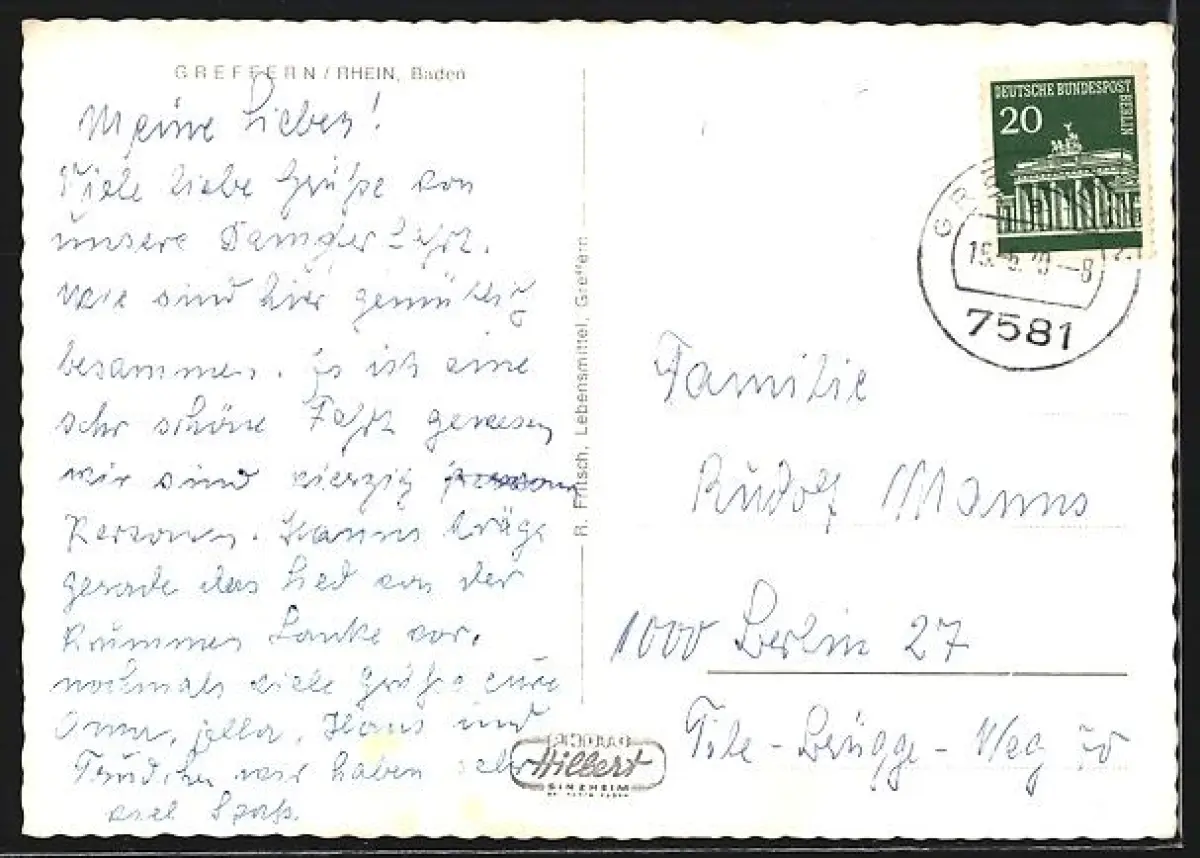 GREFFERN / RHEIN, Baden
Meine Lieben!
Viele liebe Grüße von
unsere Damgerfahrt.
wir sind hier gemütlig
besammen. Es ist eine
sehr schöne Fahrt gewesen
wir sind vierzig
Personen. Hanni
gerade das Lied von der
Krummen Lanke vor.
nochmals viele Grüße eure
Oma, Jella, Hans und
Trudchen wir haben sehr
viel Spaß.
R. Fritsch, Lebensmittel, Greffern
Hillert
SINZHEIM
DEUTSCHE BUNDESPOST
BERLIN
20
7581
Familie
Rudolf Manns
1000 Berlin 27
Tile-Brügge-Weg